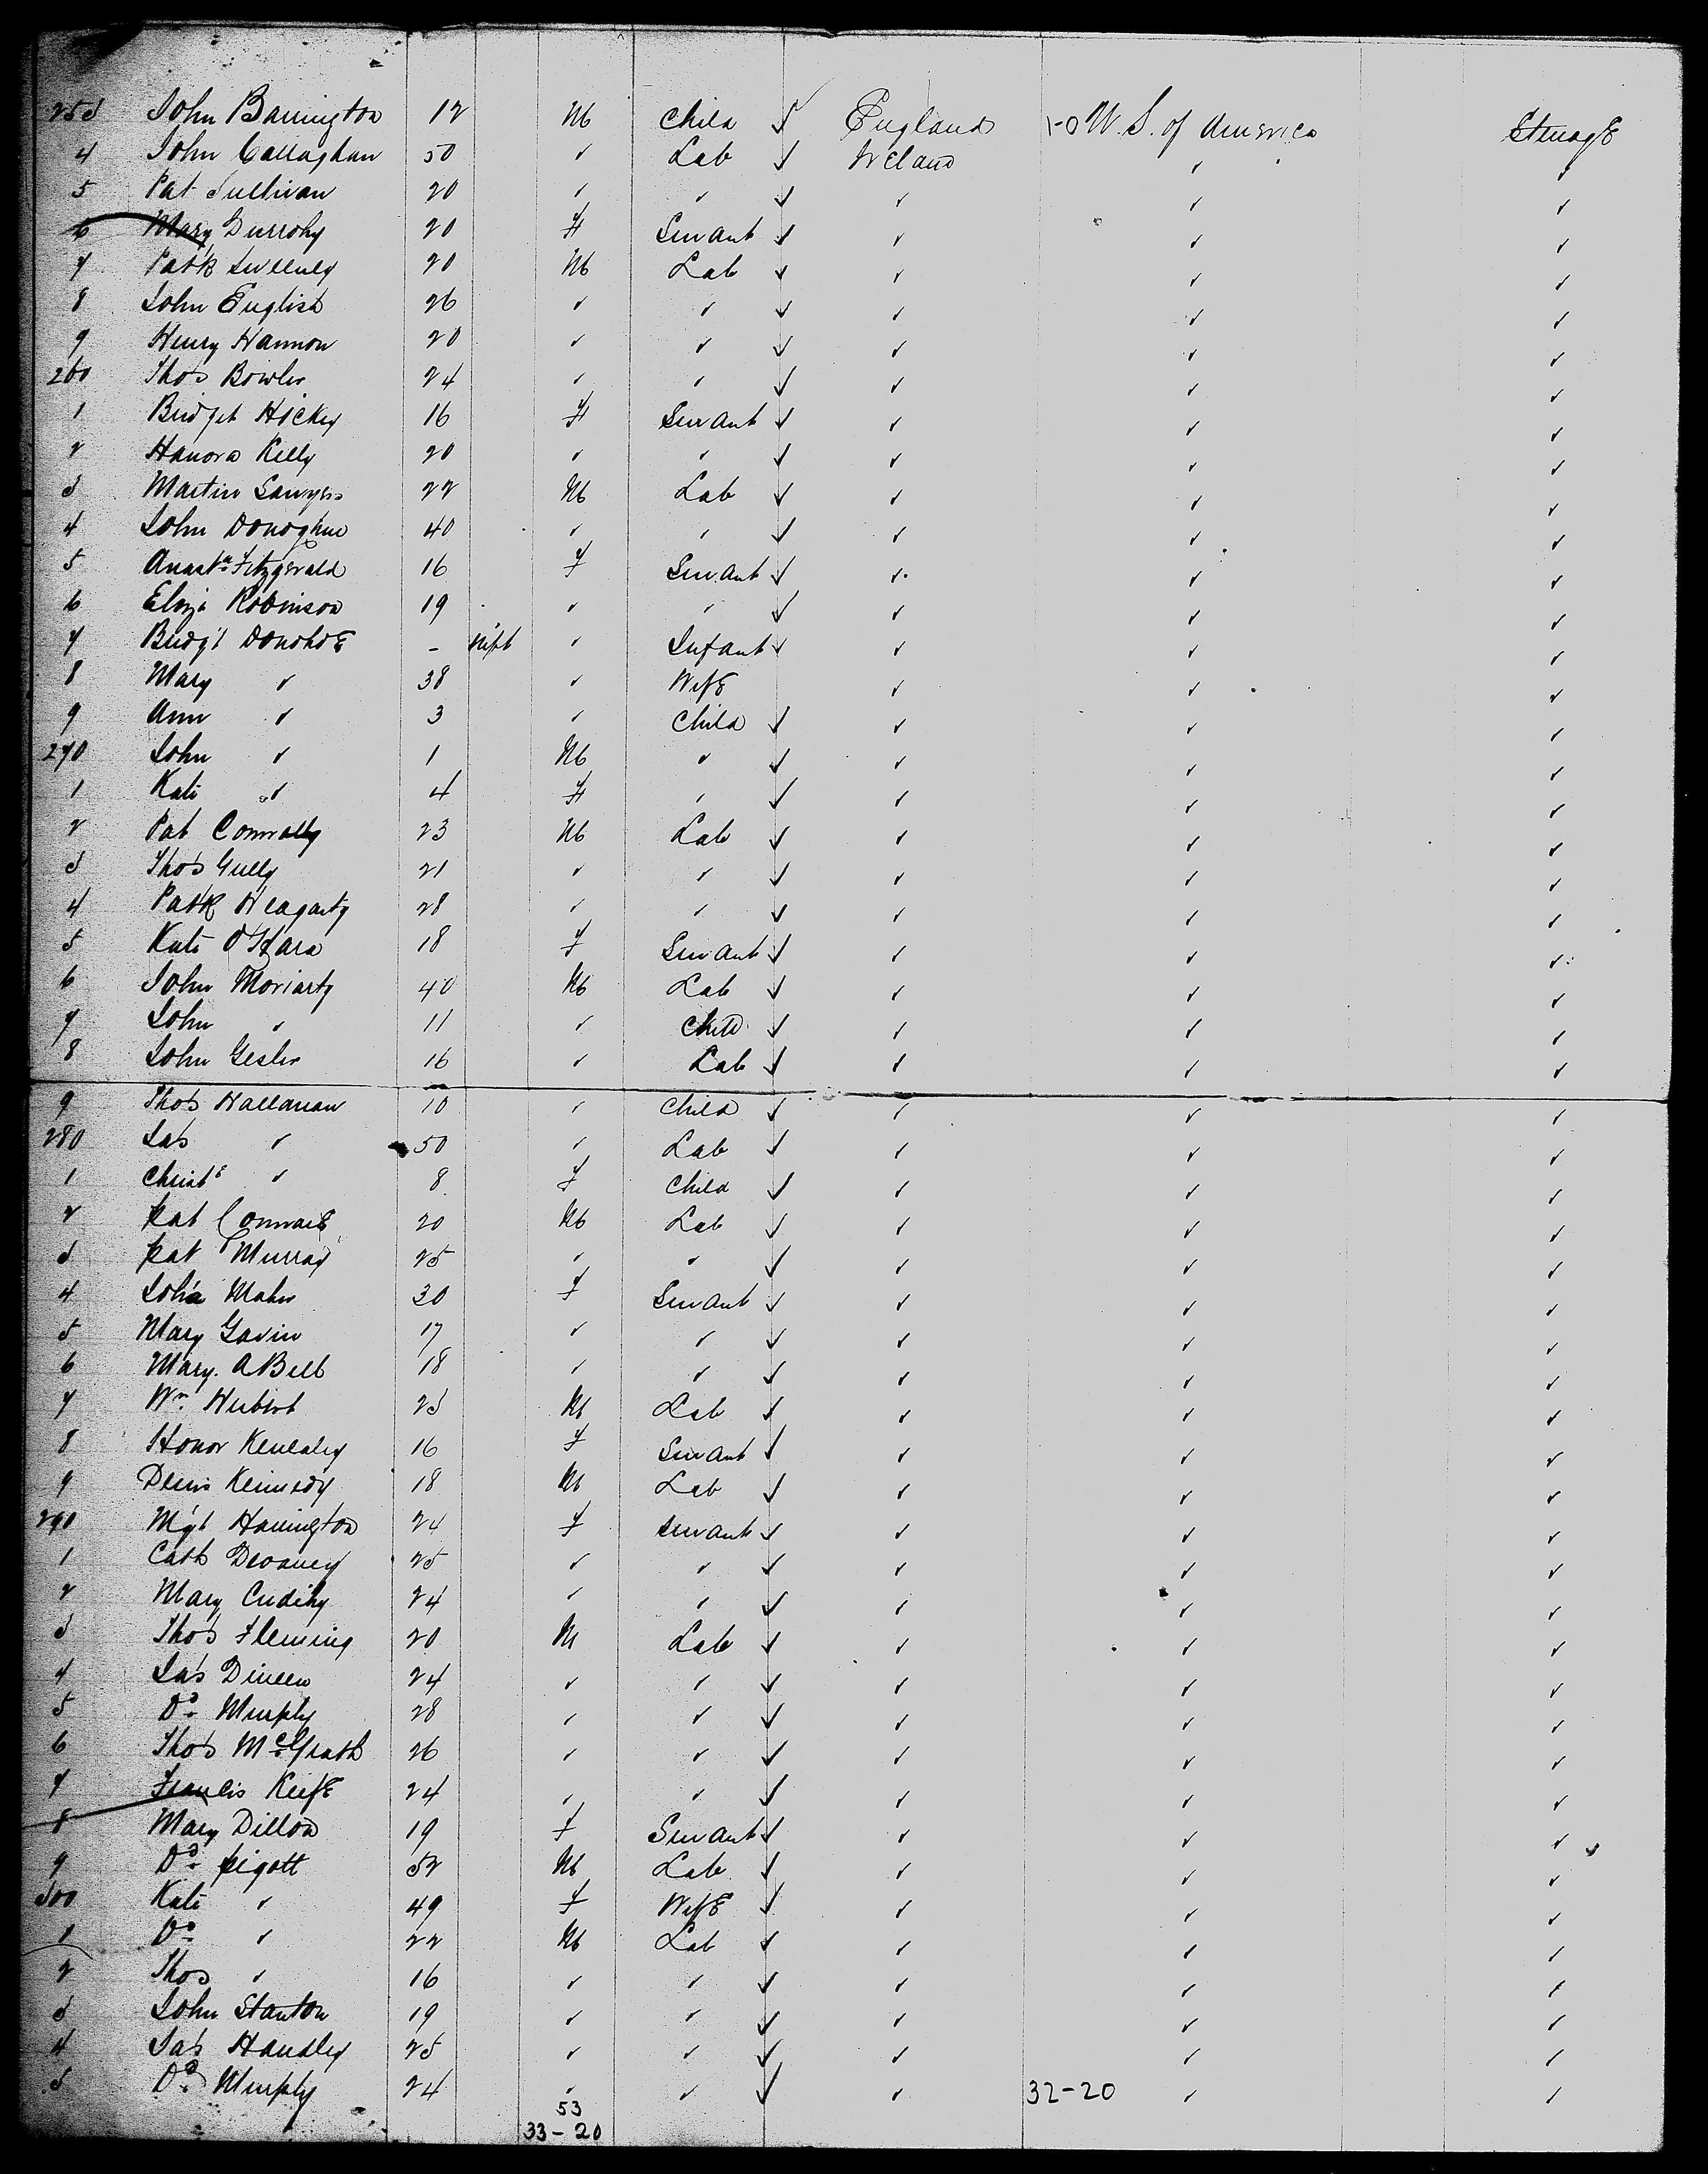 253 John Barrington 12 M Child ✓ England 1-0 U.S. of America Steerage
4 John Callaghan 50 " Lab ✓ Ireland " "
5 Pat Sullivan 20 " " ✓ " " "
6 Mary Durrohy 20 F Servant ✓ " " "
7 Patk Sweeney 20 M Lab ✓ " " "
8 John English 26 " " ✓ " " "
9 Henry Hannon 20 " " ✓ " " "
260 Thos Bowler 24 " " ✓ " " "
1 Bridget Hickey 16 F Servant ✓ " " "
2 Hanora Kelly 20 " " ✓ " " "
3 Martin Sawyers 22 M Lab ✓ " " "
4 John Donoghue 40 " " ✓ " " "
5 Anasta Fitzgerald 16 F Servant ✓ " " "
6 Eliza Robinson 19 " " ✓ " " "
7 Bridgt DonohoE - " Infant ✓ " " "
8 Mary " 38 " WifE " " "
9 Ann " 3 " Child ✓ " " "
270 John " 1 M " ✓ " " "
1 Kate " 4 F " ✓ " " "
2 Pat Connolly 23 M Lab ✓ " " "
3 Thos Gully 21 " " ✓ " " "
4 Patk Heagarty 28 " " ✓ " " "
5 Kate O'Hara 18 F Servant ✓ " " "
6 John Moriarty 40 M Lab ✓ " " "
7 John " 11 " Child ✓ " " "
8 John Gesler 16 " Lab ✓ " " "
9 Thos Hallanan 10 " Child ✓ " " "
280 Jas " 50 " Lab ✓ " " "
1 Christe " 8 F Child ✓ " " "
2 Pat 20 M Lab ✓ " " "
3 Pat Murray 25 " " ✓ " " "
4 Maher 30 F Servant ✓ " " "
5 Mary Gavin 17 " " ✓ " " "
6 Mary. A Bell 18 " " ✓ " " "
7 Wm Herbert 23 M Lab ✓ " " "
8 Honor Kenealey 16 F Servant ✓ " " "
9 Denis Kennedy 18 M Lab ✓ " " "
290 Mgt Harrington 24 F Servant ✓ " " "
1 Cath Devaney 25 " " ✓ " " "
2 Mary Cudihy 24 " " ✓ " " "
3 Thos Fleming 20 M Lab ✓ " " "
4 Jas Dineen 24 " " ✓ " " "
5 Do Murphy 28 " " ✓ " " "
6 Thos McGrath 26 " " ✓ " " "
7 Francis KeefE 24 " " ✓ " " "
8 Mary Dillon 19 F Servant ✓ " " "
9 Do Pigott 52 M Lab ✓ " " "
300 Kate " 49 F WifE ✓ " " "
1 Do " 22 M Lab ✓ " " "
2 Thos " 16 " " ✓ " " "
3 John Stanton 19 " " ✓ " " "
4 Jas Handley 25 " " ✓ " " "
5 Do Murphy 24 " " ✓ " 32-20 " "
53
33-20